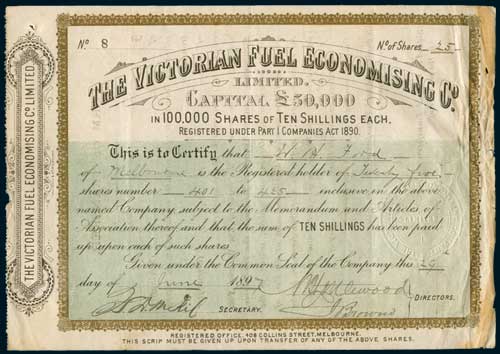 No 8
No of Shares 25
THE VICTORIAN FUEL ECONOMISING Co.
LIMITED.
CAPITAL £50,000
IN 100,000 SHARES OF TEN SHILLINGS EACH.
REGISTERED UNDER PART I COMPANIES ACT 1890.
This is to Certify that W H Ford
of Melbourne is the Registered holder of Twenty five
shares number 401 to 425 inclusive in the above
named Company subject to the Memorandum and Articles of
Association thereof and that the sum of TEN SHILLINGS has been paid
up upon each of such shares
Given under the Common Seal of the Company this
day of June 1897
SECRETARY.
DIRECTORS.
REGISTERED OFFICE, 408 COLLINS STREET, MELBOURNE.
THIS SCRIP MUST BE GIVEN UP UPON TRANSFER OF ANY OF THE ABOVE SHARES.
THE VICTORIAN FUEL ECONOMISING Co LIMITED.